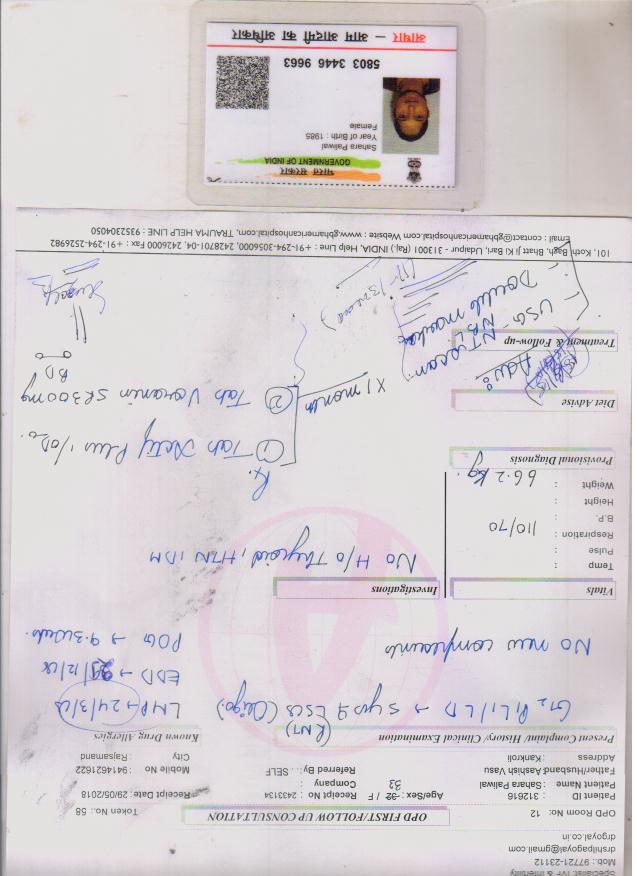 Specialist: IVF & Infertility
Mob.: 97721-23112
drshilpagoyal@gmail.com
drgoyal.co.in
OPD Room No: 12
OPD FIRST/FOLLOW UP CONSULTATION
Token No.: 58
Patient ID : 312616
Age/Sex : 32 / F
33
Receipt No : 2433134
Receipt Date: 28/05/2018
Patient Name : Sahara Paliwal
Company :
Mobile No : 9414621622
Father/Husband Aashish Vasu
Referred By: . SELF
City : Rajsamand
Address : Kankroli
Present Complaint/ History/ Clinical Examination
Known Drug Allergies
G2 P1 L1 / LD → 5 yrs LSCS (Oligo.)
(RNT)
LMP → 24/3/18
EDD → /12/18
POG → 9.3 weeks
No new complaints
Vitals
Investigations
Temp :
Pulse :
Respiration :
B.P. : 110/70
Height :
Weight : 66.2 kg.
No H/o Thyroid, HTN, DM
Provisional Diagnosis
Rx
① Tab Plus 1/OD.
② Tab SR 300mg
BD
X 1 month
Diet Advise
Treatment & Follow-up
Adv:
NT scan
USG - NB
Double marker
101, Kothi Bagh, Bhatt Ji Ki Bari, Udaipur - 313001 (Raj.) INDIA, Help Line : +91-294-3056000, 2428701-04, 2426000 Fax : +91-294-2526982
Email : contact@gbhamericanhospital.com Website : www.gbhamericanhospital.com, TRAUMA HELP LINE : 9352304050
भारत सरकार
GOVERNMENT OF INDIA
Sahara Paliwal
Year of Birth : 1985
Female
5803 3446 9663
आधार — आम आदमी का अधिकार